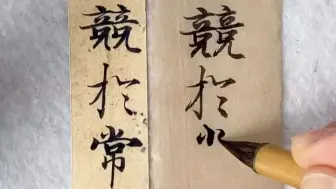 競於常
競於